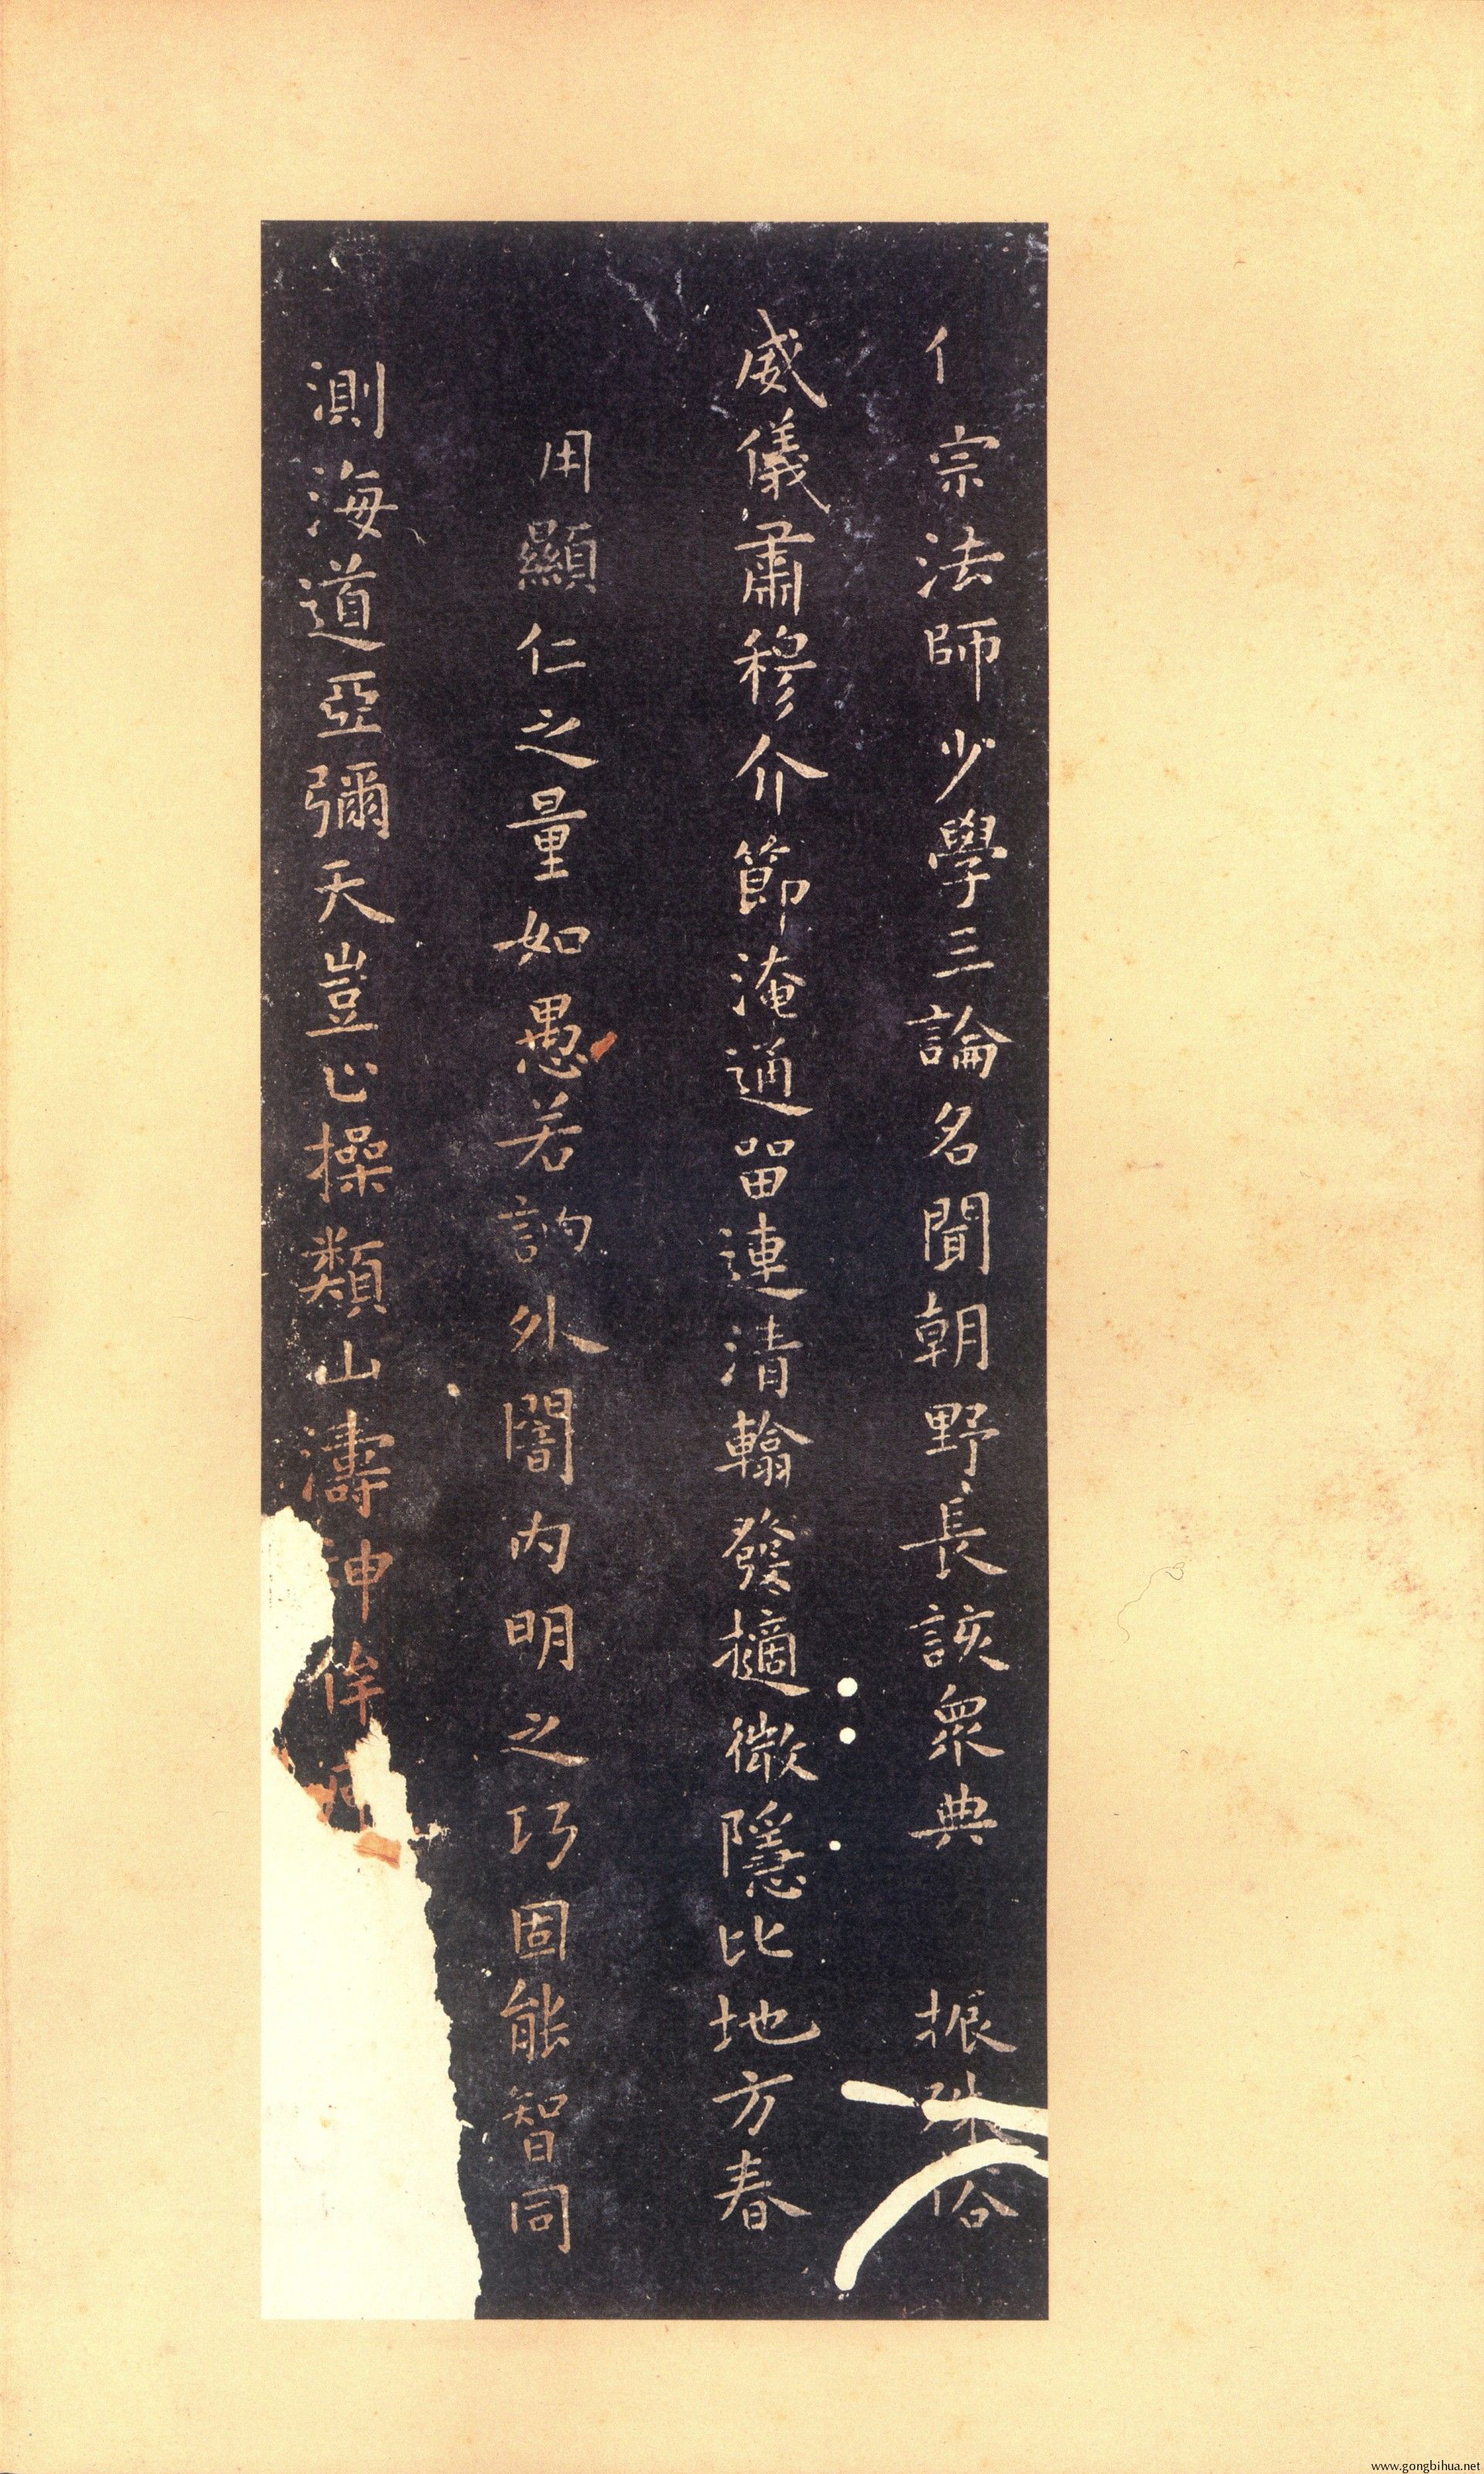 亻宗法師少學三論名聞朝野長該眾典振殊俗
威儀肅穆介節淹通留連清翰發擿微隱比地方春
用顯仁之量如愚若訥外闇內明之巧固能智同
測海道亞彌天豈止操類山濤神侔
www.gongbihua.net